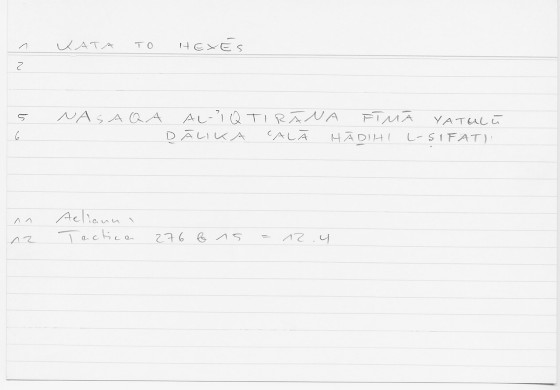 1 KATA TO HEXĒS
2
5 NASAQA AL-'IQTIRĀNA FĪMĀ YATULŪ
6 ḎĀLIKA ʿALĀ HĀḎIHI L-ṢIFATI
11 Aelianus
12 Tactica 276 B 15 = 12.4